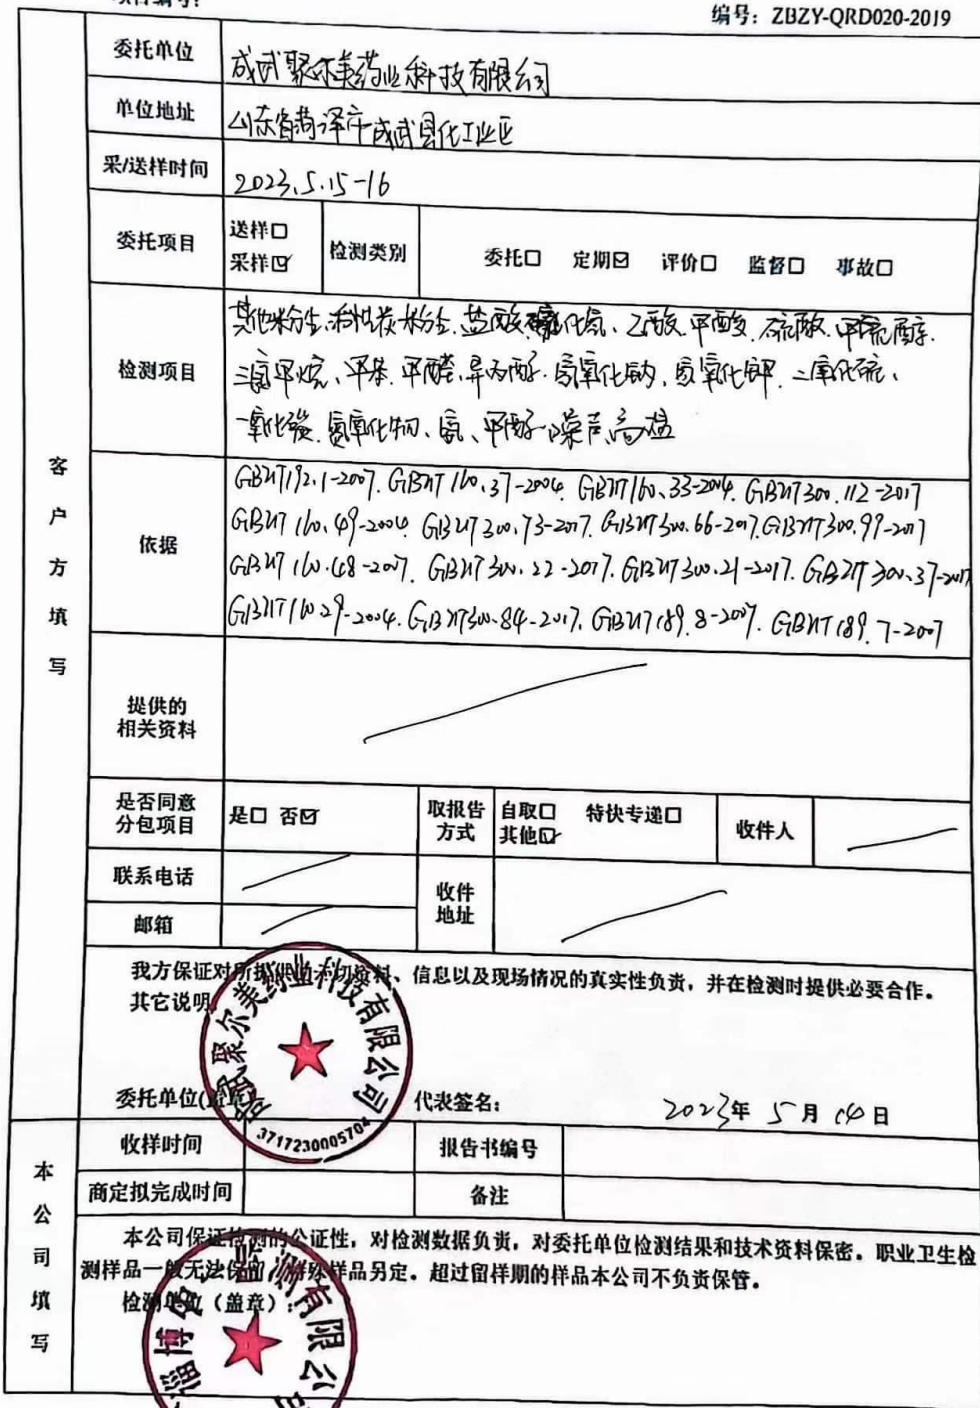 编号：ZBZY-QRD020-2019
委托单位 成武聚尔美药业科技有限公司
单位地址 山东省菏泽市成武县化工业区
采/送样时间 2023.5.15-16
委托项目 送样□ 采样☑ 检测类别 委托□ 定期☑ 评价□ 监督□ 事故□
检测项目
其他粉尘、活性炭粉尘、盐酸、化氢、乙酸、甲酸、硫酸、甲硫醇、
三氯甲烷、甲苯、甲醛、异丙醇、氢氧化钠、氢氧化钾、二氧化硫、
一氧化碳、氢氧化钠、氨、甲醇、噪声、高温
依据
GBZ/T192.1-2007. GBZ/T160.37-2004. GBZ/T160.33-2004. GBZ/T300.112-2017
GBZ/T160.49-2004. GBZ/T300.73-2017. GBZ/T300.66-2017. GBZ/T300.99-2017
GBZ/T160.48-2007. GBZ/T300.22-2017. GBZ/T300.21-2017. GBZ/T300.37-2017
GBZ/T160.29-2004. GBZ/T300.84-2017. GBZ/T189.8-2007. GBZ/T189.7-2007
客户方填写
提供的
相关资料
是否同意
分包项目
是□ 否☑
取报告
方式
自取□ 特快专递□
其他☑
收件人
联系电话
收件
地址
邮箱
我方保证对所提供的一切资料、信息以及现场情况的真实性负责，并在检测时提供必要合作。
其它说明
成武聚尔美药业科技有限公司
3717230005704
委托单位(盖章) 代表签名： 2023年 5月 14日
收样时间 报告书编号
商定拟完成时间 备注
本公司填写
本公司保证检测的公证性，对检测数据负责，对委托单位检测结果和技术资料保密。职业卫生检
测样品一般无法保留，特殊样品另定。超过留样期的样品本公司不负责保管。
检测单位（盖章）：
淄博 有限公司